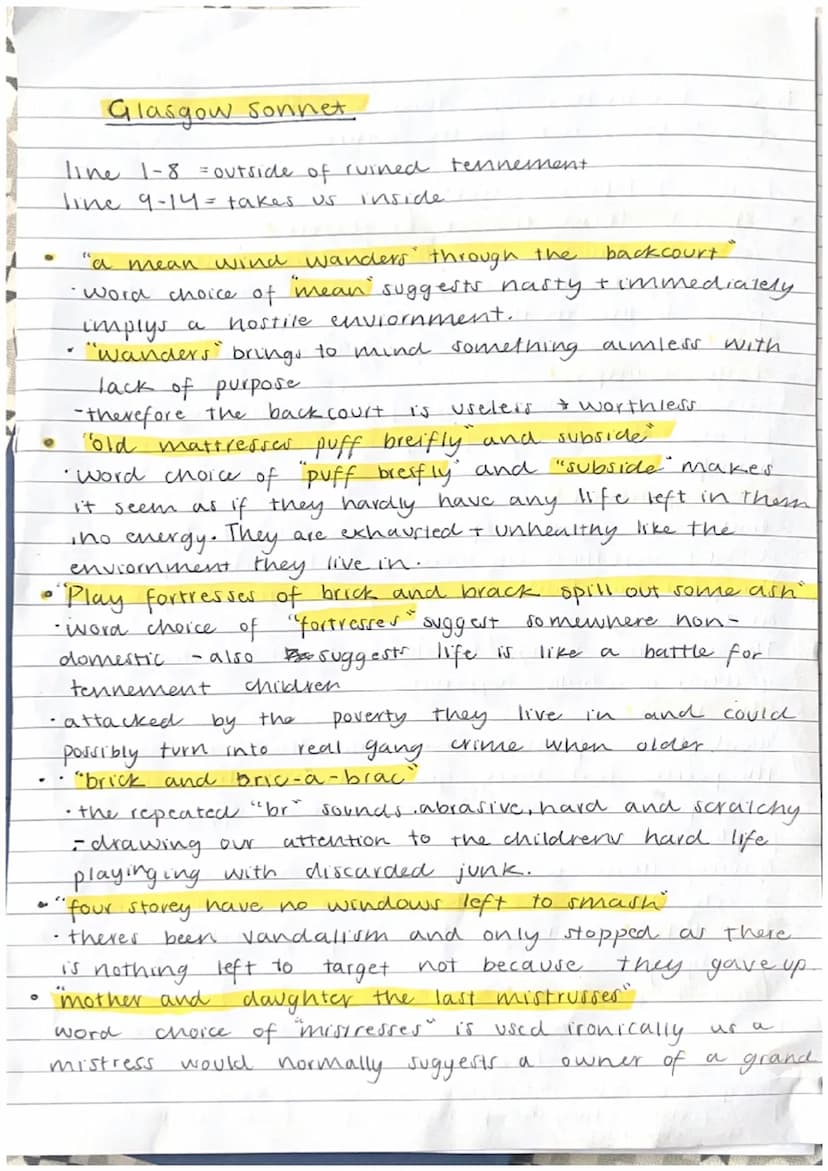 Glasgow Sonnet
line 1-8 = outside of ruined tennement
line 9-14 = takes us inside
• "a mean wind wanders" through the backcourt"
· word choice of "mean" suggests nasty + immediately
implys a hostile enviornment.
· "wanders" brings to mind something aimless with
lack of purpose
- therefore the backcourt is useless + worthless
• "old mattresses puff breifly" and subside"
· word choice of "puff breifly" and "subside" makes
it seem as if they hardly have any life left in them
, no energy. They are exhausted + unhealthy like the
enviornment they live in.
• "Play fortresses of brick and brack spill out some ash"
· word choice of "fortresses" suggest somewhere non-
domestic - also suggests life is like a battle for
tennement children
· attacked by the poverty they live in and could
possibly turn into real gang crime when older
· · "brick and bric-a-brac"
· the repeated "br" sounds . abrasive, hard and scratchy
- drawing our attention to the childrens hard life
playinging with discarded junk.
• "four storey have no windows left to smash"
· theres been vandalism and only stopped as there
is nothing left to target not because they gave up
• "mother and daughter the last mistrusses"
word choice of "mistresses" is used ironically as a
mistress would normally suggests a owner of a grand